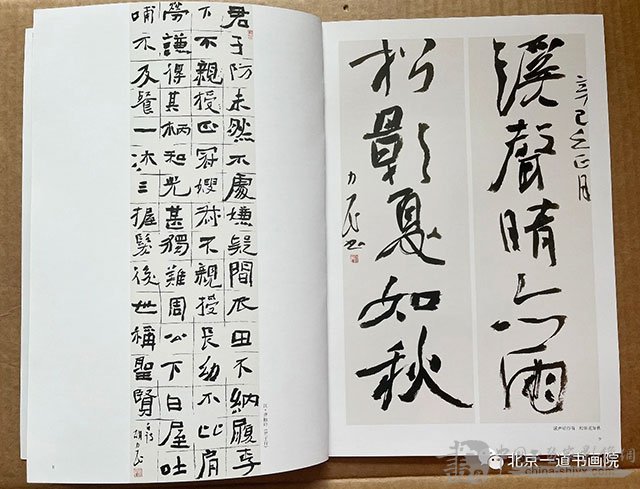 君子防未然不處嫌疑間瓜田不納履李
下不親授正冠嫂叔不親授長幼不比肩
勞謙得其柄和光甚獨難周公下白屋吐
哺不及餐一沐三握髮後世稱聖賢
辛巳之正月
溪聲晴亦雨
松影夏如秋
溪声晴亦雨 松影夏如秋
北京一道书画院